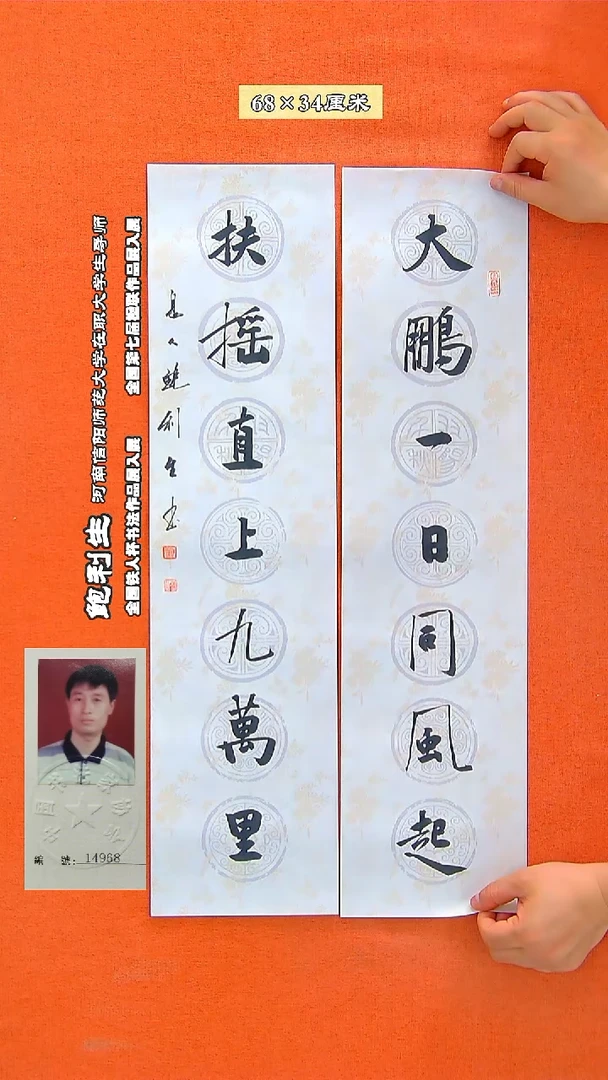 68×34厘米
大鹏一日同風起
扶摇直上九萬里
鲍利生书
鲍利生 河南信阳师范大学在职大学生导师
全国第七届楹联作品展入展
全国铁人杯书法作品展入展
編 號: 14968